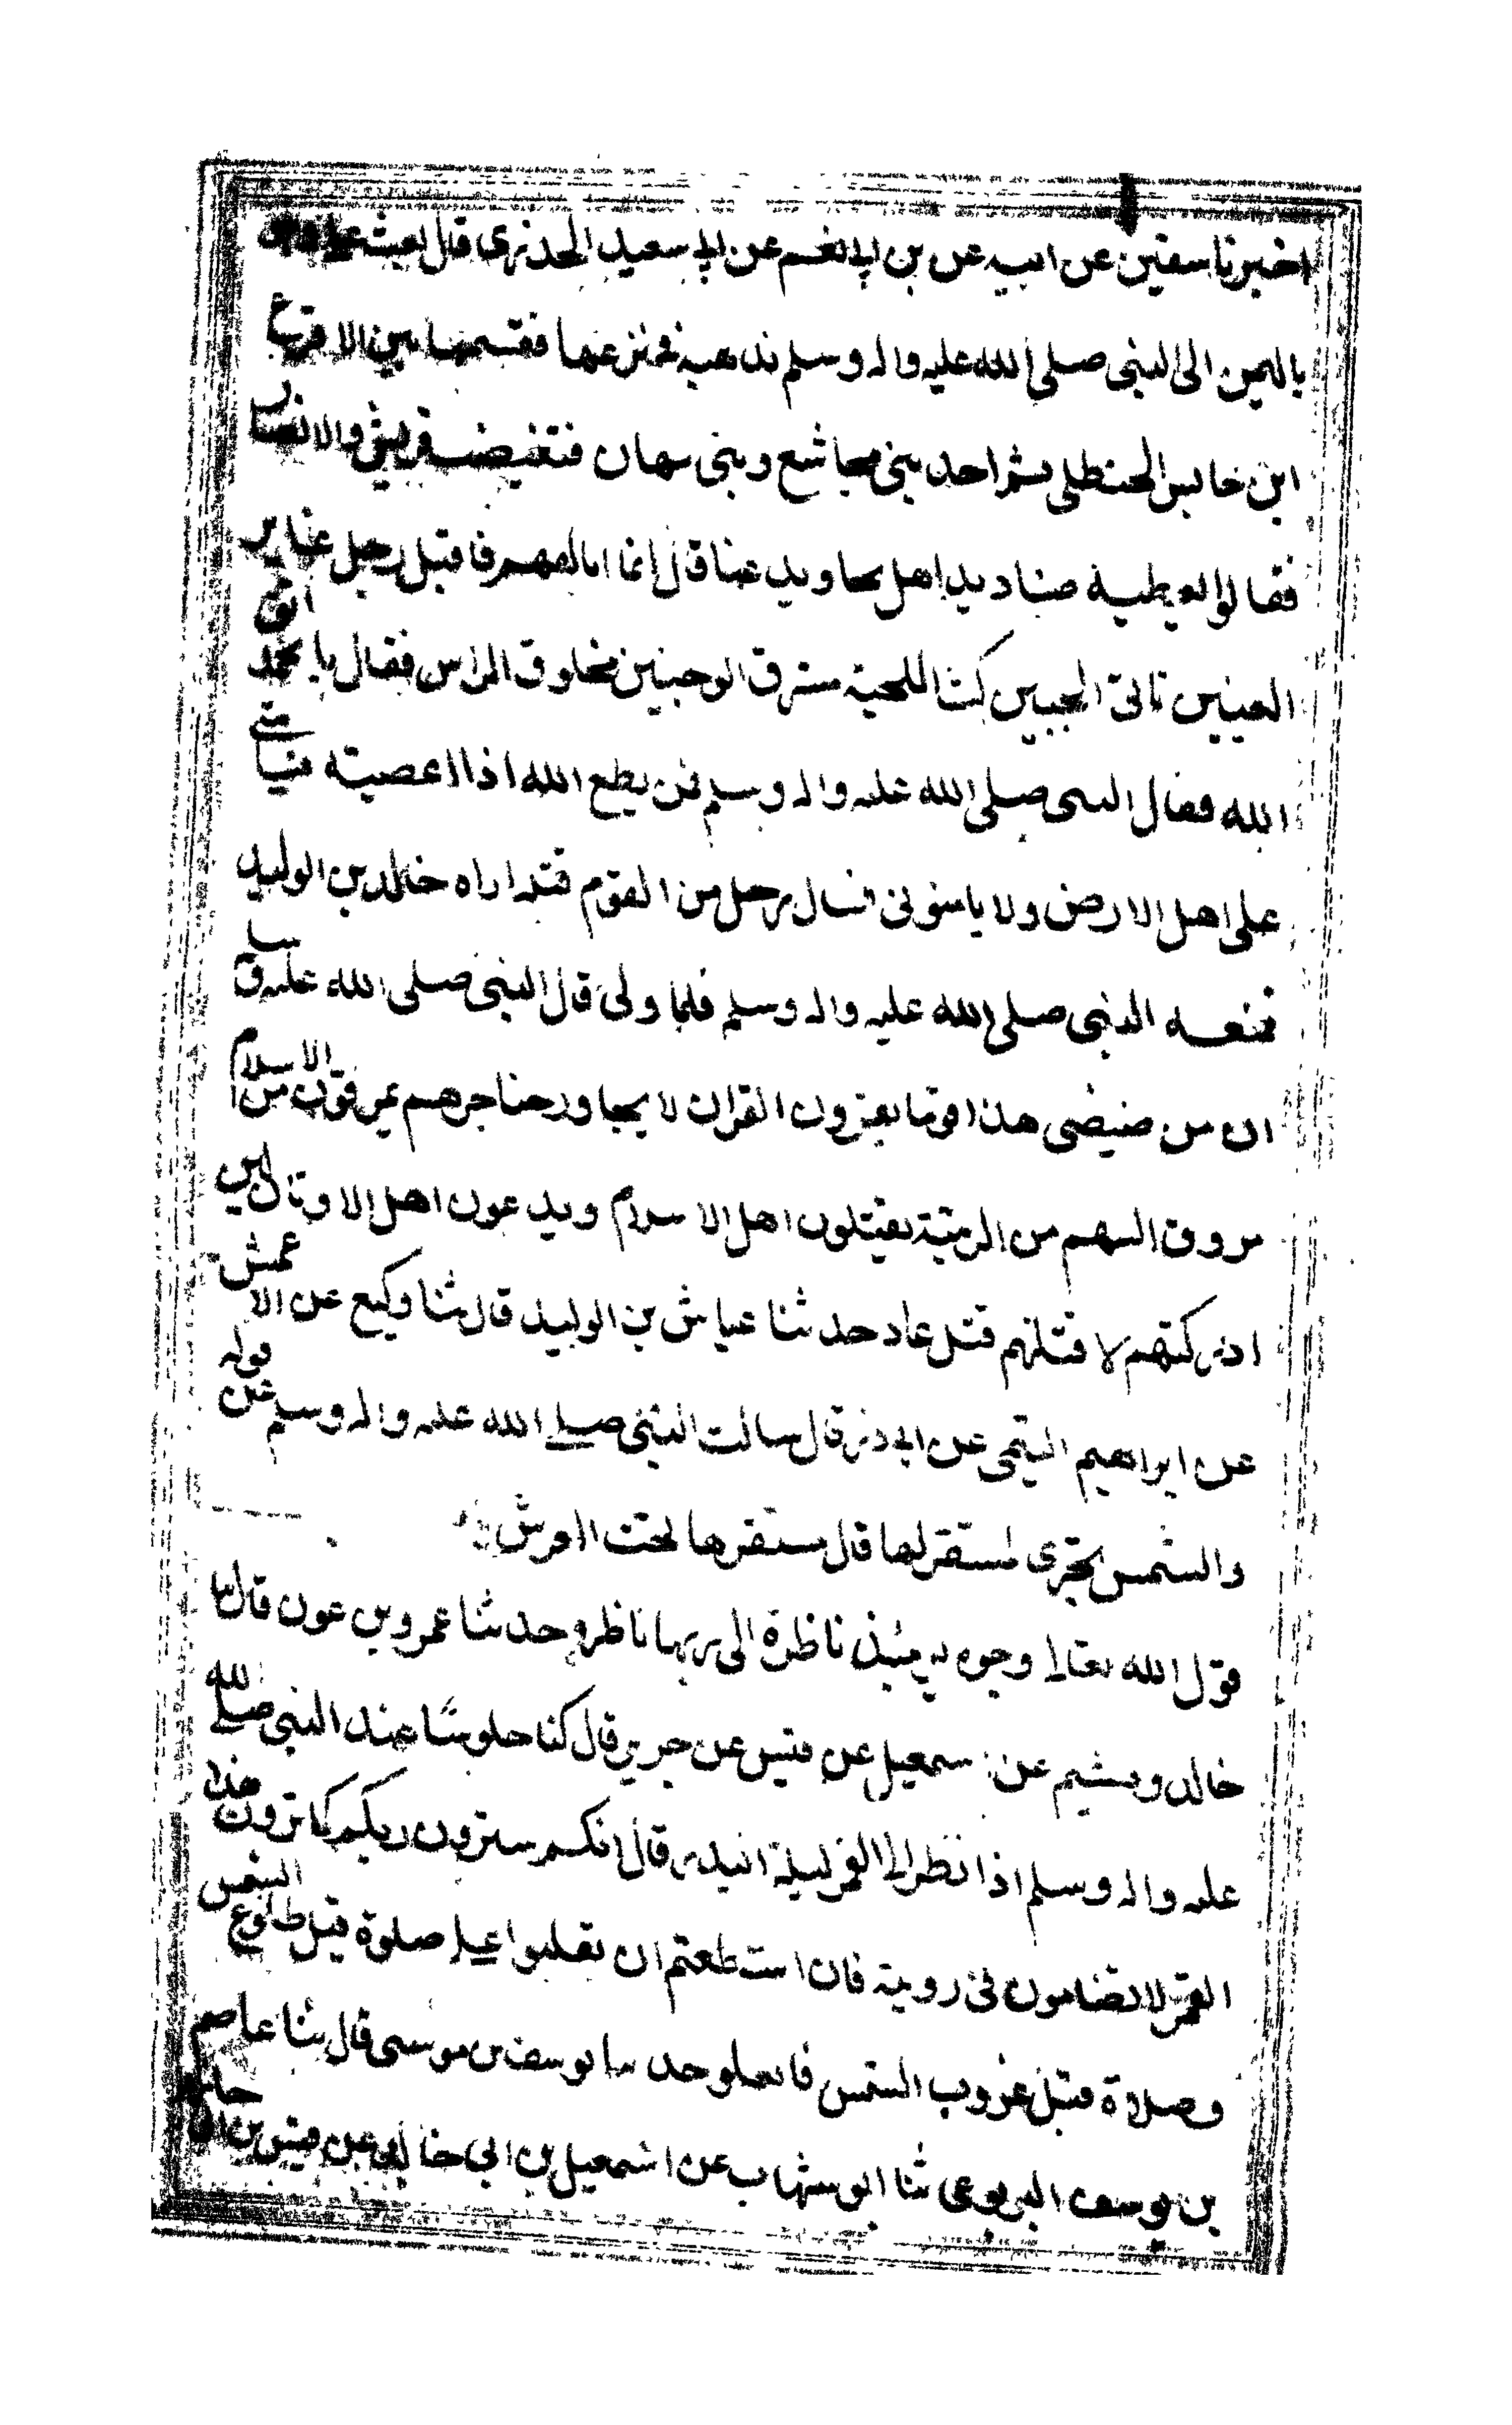 اخبرنا سفين عن ابيه عن بن ابي نغم عن ابي سعيد الخدري قال بعث علي وهو
باليمن الى النبي صلى الله عليه واله وسلم بذهبية في تربتها فقسمها بين الاقرع
ابن حابس الحنظلي ثم احد بني مجاشع وبني نبهان فتغيضت قريش والانصار
فقالوا يعطيه صناديد اهل نجد ويدعنا قال انما اتالفهم فاقبل رجل غاير
العينين ناتئ الجبين كث اللحية مشرق الوجنتين محلوق الراس فقال يا محمد اتق
الله فقال النبي صلى الله عليه واله وسلم فمن يطع الله اذا اعصيته فيامني
على اهل الارض ولا يامنوني فسال رجل من القوم قتله اراه خالد بن الوليد
فمنعه النبي صلى الله عليه واله وسلم فلما ولى قال النبي صلى الله عليه وسلم
ان من ضيضي هذا قوما يقرون القران لا يجاوز حناجرهم يمرقون من الاسلام
مروق السهم من الرمية يقتلون اهل الاسلام ويدعون اهل الاوثان لين
ادركتهم لا قتلنهم قتل عاد حدثنا عياش بن الوليد قال ثنا وكيع عن الاعمش
عن ابراهيم التيمي عن ابي ذر قال سالت النبي صلى الله عليه واله وسلم عن قوله
والشمس تجري لمستقر لها قال مستقرها تحت العرش
قول الله تعالى وجوه يوميذ ناظرة الى ربها ناظره حدثنا عمرو بن عون قال ثنا
خالد وهشيم عن اسمعيل عن قيس عن جرير قال كنا جلوسا عند النبي صلى الله
عليه واله وسلم اذا نظر الى القمر ليلة البدر قال انكم سترون ربكم كما ترون هذا
القمر لا تضامون في روية فان استطعتم ان تغلبوا على صلوة قبل طلوع الشمس
وصلاة قبل غروب الشمس فافعلو حدثنا يوسف بن موسى قال ثنا عاصم
بن يوسف اليربوعي ثنا ابو شهاب عن اسمعيل بن ابي خالد عن قيس بن ابي حازم